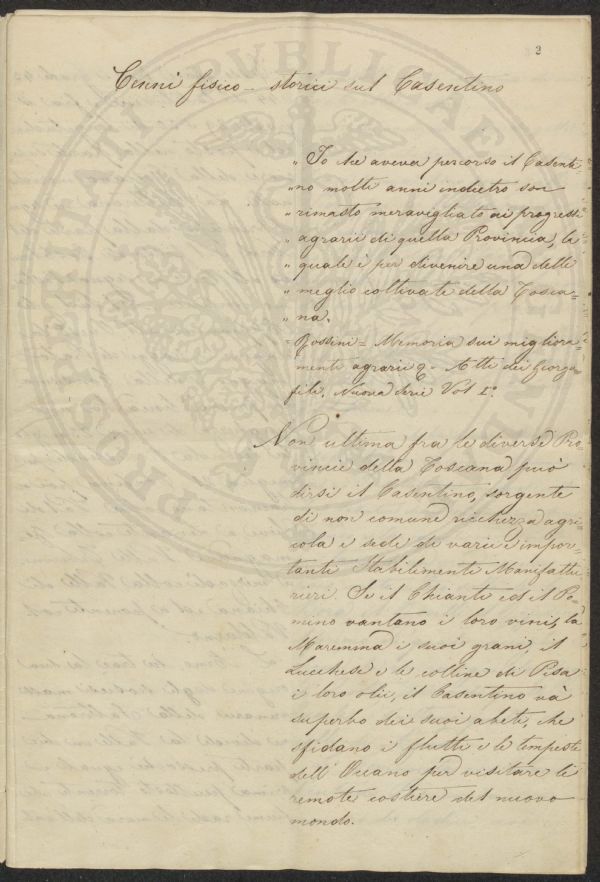 2
Cenni fisico - storici sul Casentino
" Io che aveva percorso il Casenti-
" no molti anni indietro son
" rimasto meravigliato ai progressi
" agrarii di quella Provincia, la
" quale è per divenire una delle
" meglio coltivate della Tosca-
" na.
Rossini = Memoria sui migliora-
menti agrarii &. Atti dei Georgo
fili. Nuova Serie Vol I.º
Non ultima fra le diverse Pro-
vincie della Toscana può
dirsi il Casentino, sorgente
di non comune ricchezza agri-
cola e sede di varii e impor-
tanti Stabilimenti Manifattu
rieri. Se il Chianti ed il Po-
mino vantano i loro vini, la
Maremma i suoi grani, il
Lucchese e le colline di Pisa
i loro olii, il Casentino và
superbo dei suoi abeti, che
sfidano i flutti e le tempeste
dell' Oceano per visitare le
remote costiere del nuovo
mondo.
PROSPERITATI PVBLICAE